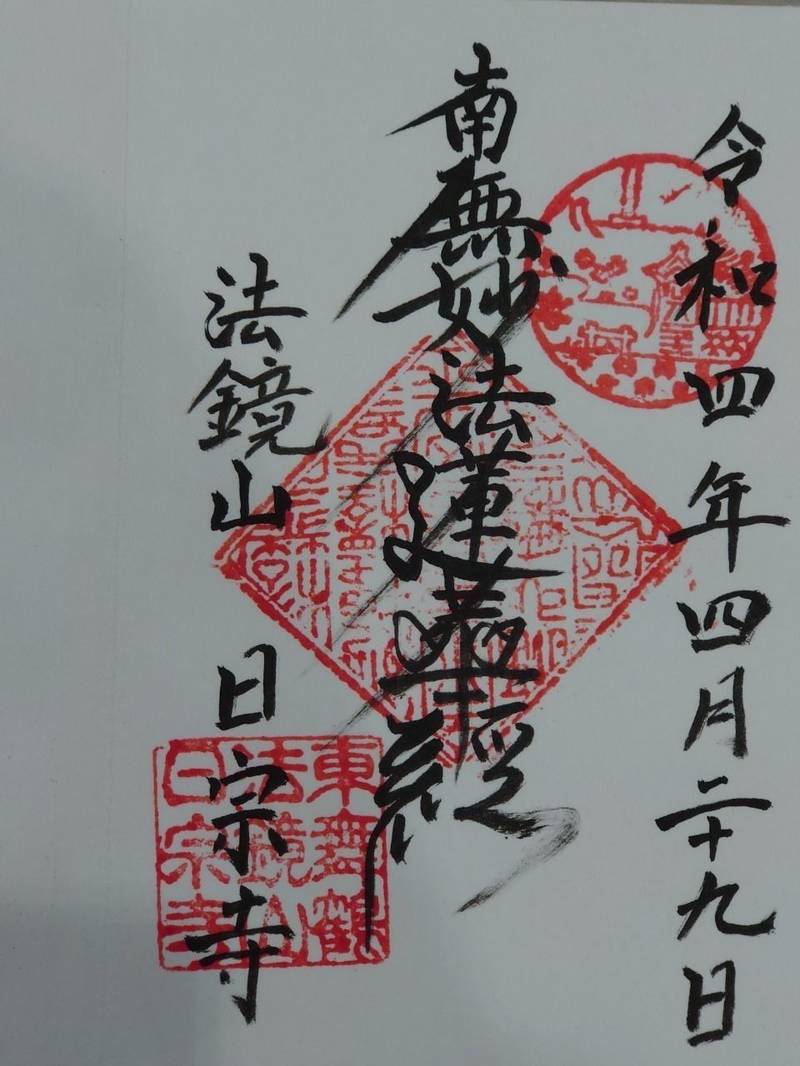 令和四年四月二十九日
南無妙法蓮華經
法鏡山 日宗寺
東舞鶴
法鏡山
日宗寺